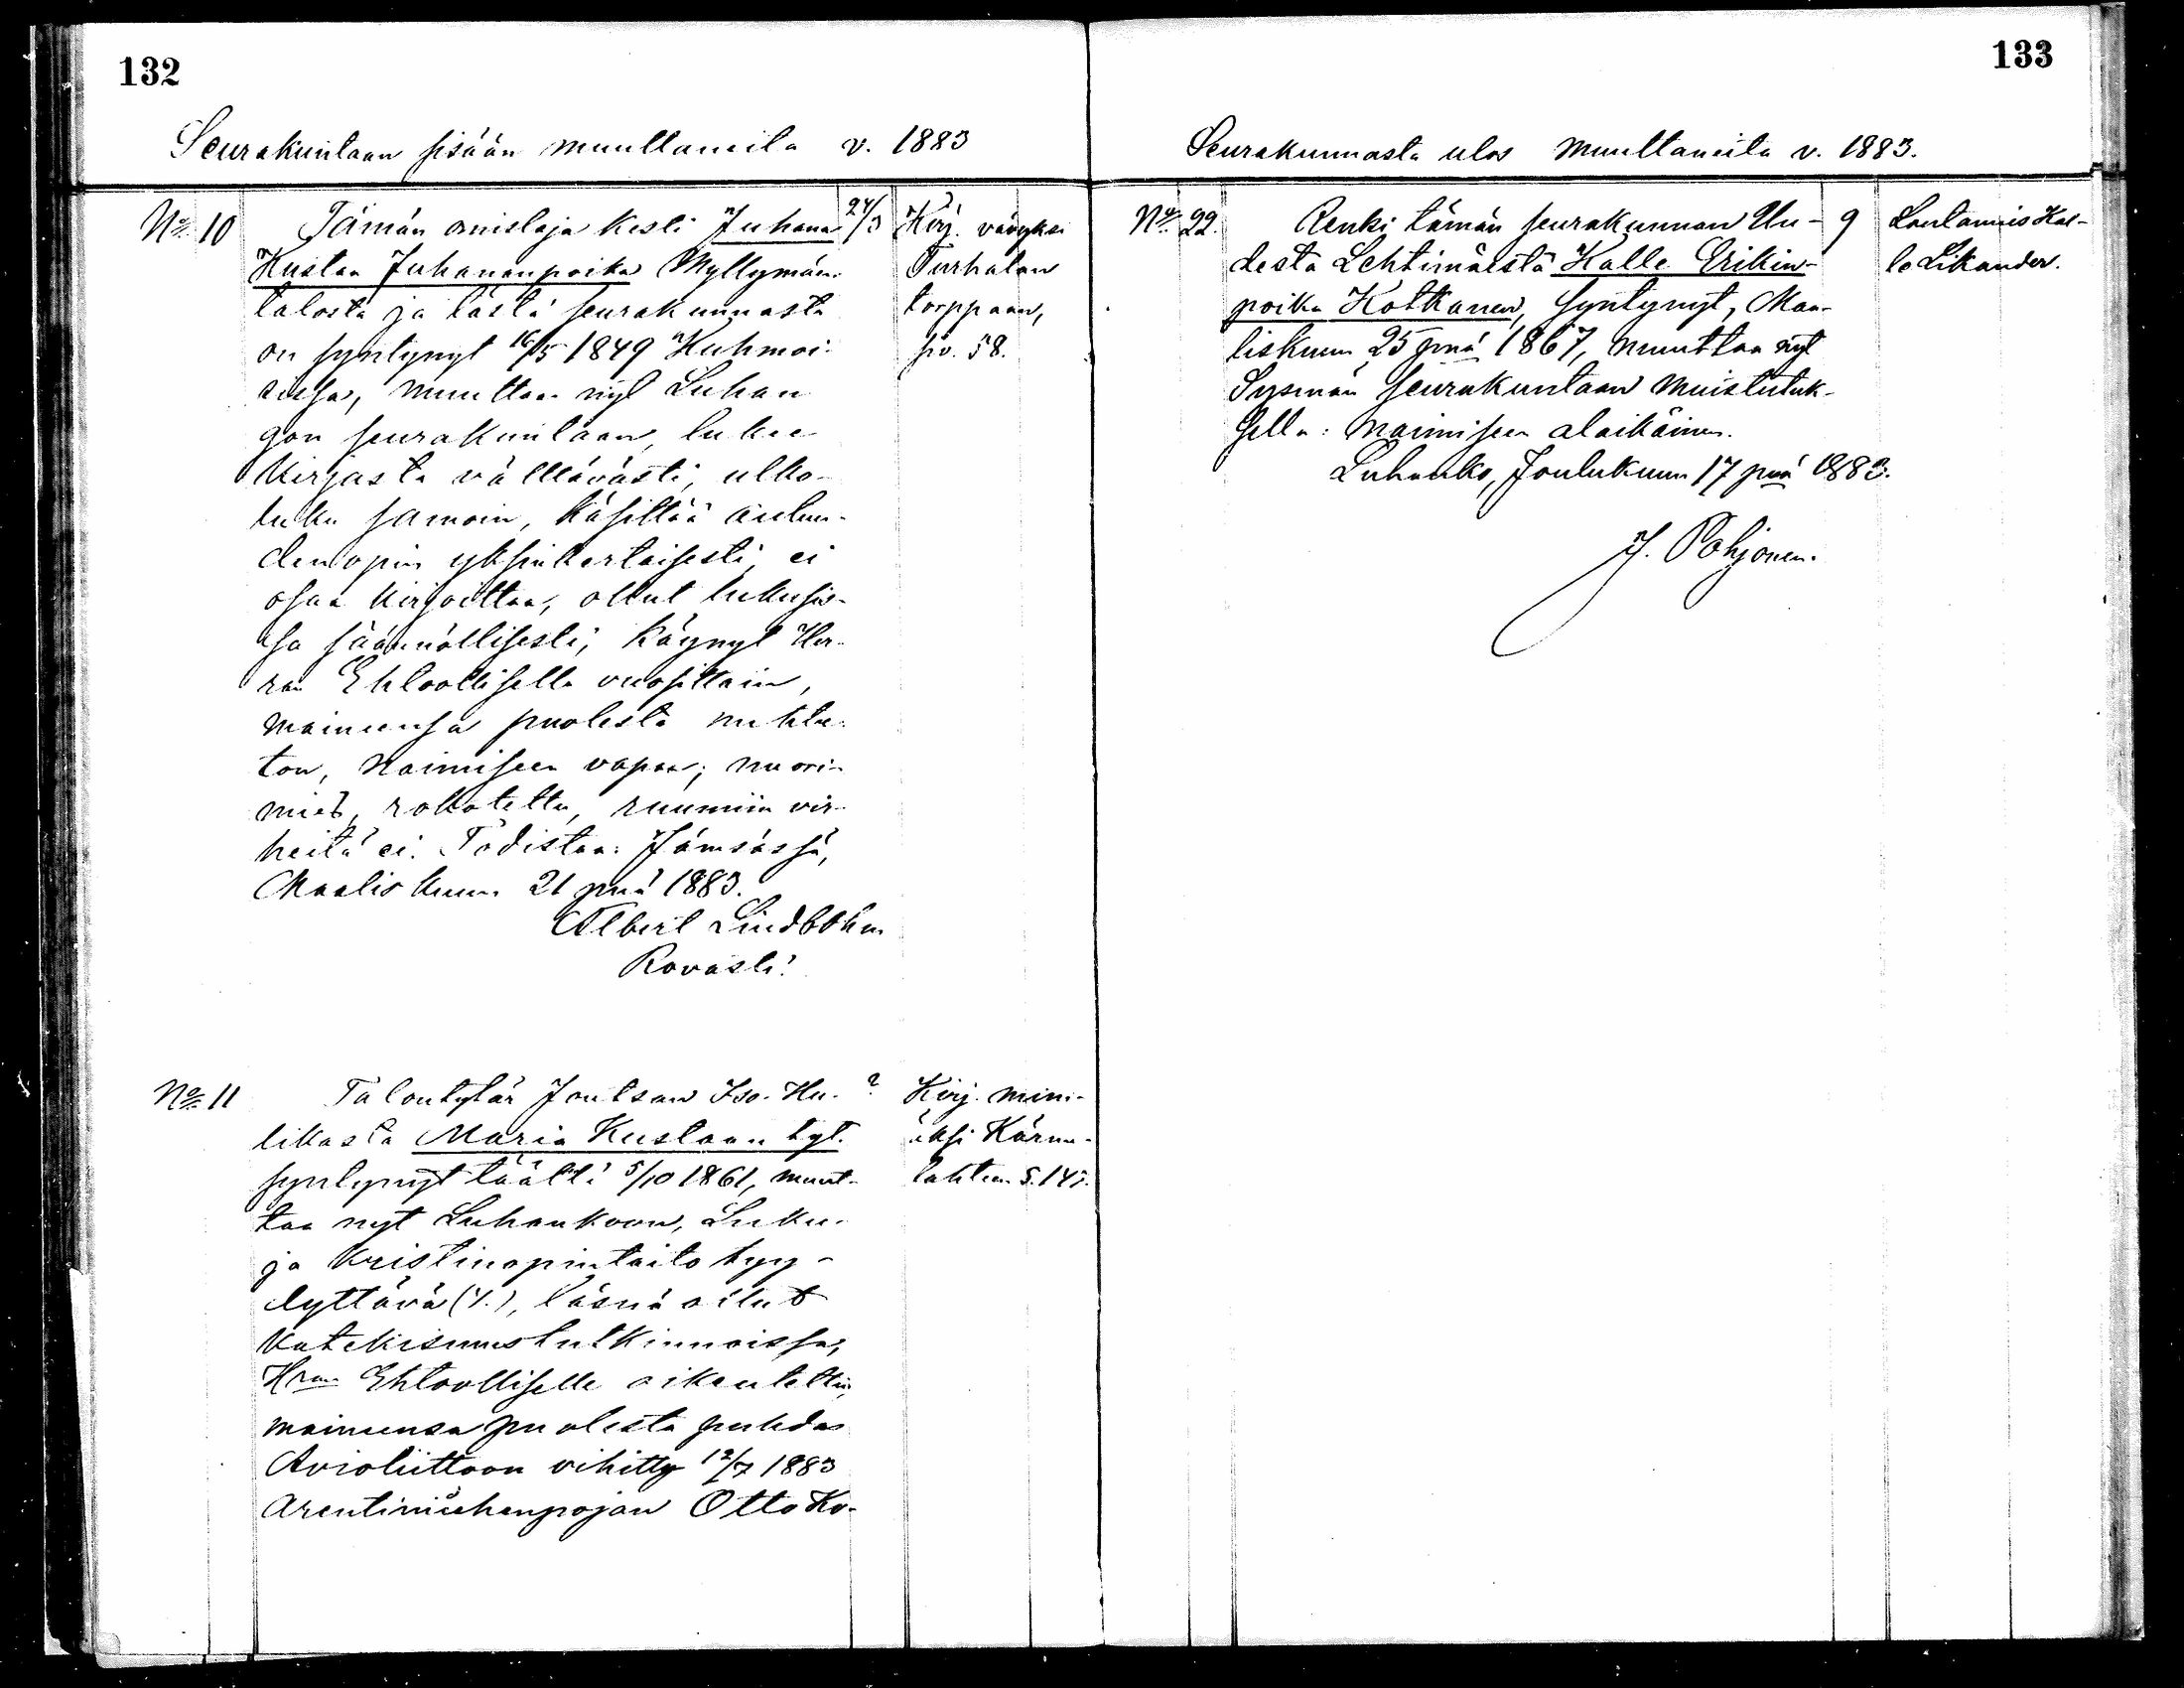 132
Seurakuntaan sisään muuttaneita v. 1883
No 10
Tämän omistaja kesti Juhana
Kustaa Juhananpoika Myllymäen
talosta ja tästä seurakunnasta
on syntynyt 16/5 1849 Kuhmoi-
sissa, muuttaa nyt Luhan
gon seurakuntaan, lukee
kirjasta välttävästi, ulko-
luku samoin, käsittää autuu-
denopin yksinkertaisesti, ei
osaa kirjoittaa, ollut lukusis-
sa säännöllisesti, käynyt Her-
ran Ehtoollisella vuosittain,
maineensa puolesta nuhtee-
ton, naimiseen vapaa; nuori-
mies, rokotettu, ruumiin vir-
heitä ei. Todistaa: Jämsässä,
Maaliskuun 21 pnä 1883.
Albert Lindbohm
Rovasti.
24/3
Kirj. vävyksi
Turhalan
torppaan,
siv. 58.
No 11
Talontytär Joutsan Iso-Hu-
likasta Maria Kustaan tyt.
syntynyt täällä 5/10 1861, muut-
taa nyt Luhankoon, Luku-
ja kristinopintaito tyy-
dyttävä (1.), läsnä ollut
katekismustutkinnoissa,
Hran Ehtoolliselle oikeutettu,
maineensa puolesta puhdas
Avioliittoon vihitty 12/7 1883
arentimiehenpojan Otto Ko-
?
Kirj. mini-
äksi Kärme-
lahteen S. 147.
133
Seurakunnasta ulos muuttaneita v. 1883.
No 22.
Renki tämän seurakunnan Uu-
desta Lehtimäestä Kalle Erikin-
poika Kotkanen, syntynyt, Maa-
liskuun 25 pnä 1867, muuttaa nyt
Sysmän seurakuntaan muistutuk-
sella: naimiseen alaikäinen.
Luhanko, Joulukuun 17 pnä 1883.
J. Pohjonen.
9
Lautamies Kal-
le Likander.